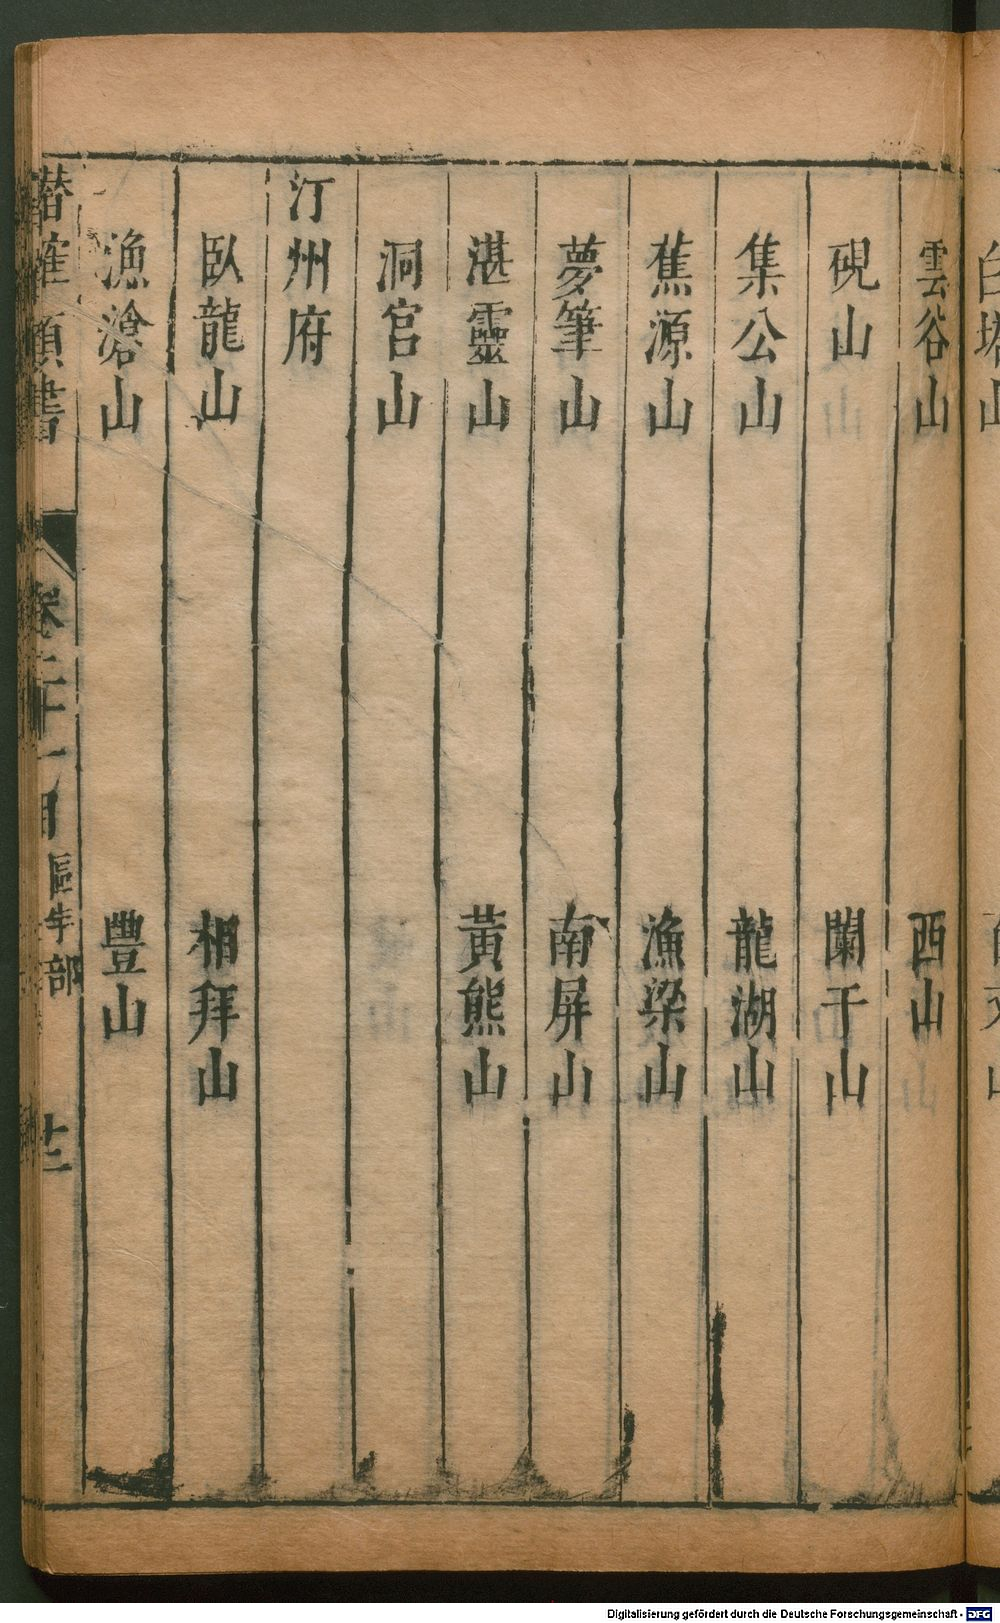 雲谷山 西山
硯山 闌干山
集公山 龍湖山
蕉源山 漁梁山
夢筆山 南屏山
湛靈山 黃熊山
洞宮山
汀州府
臥龍山 相拜山
漁滄山 豐山
潛確類書 卷二十一目 區宇部 廿三
Digitalisierung gefördert durch die Deutsche Forschungsgemeinschaft - DFG